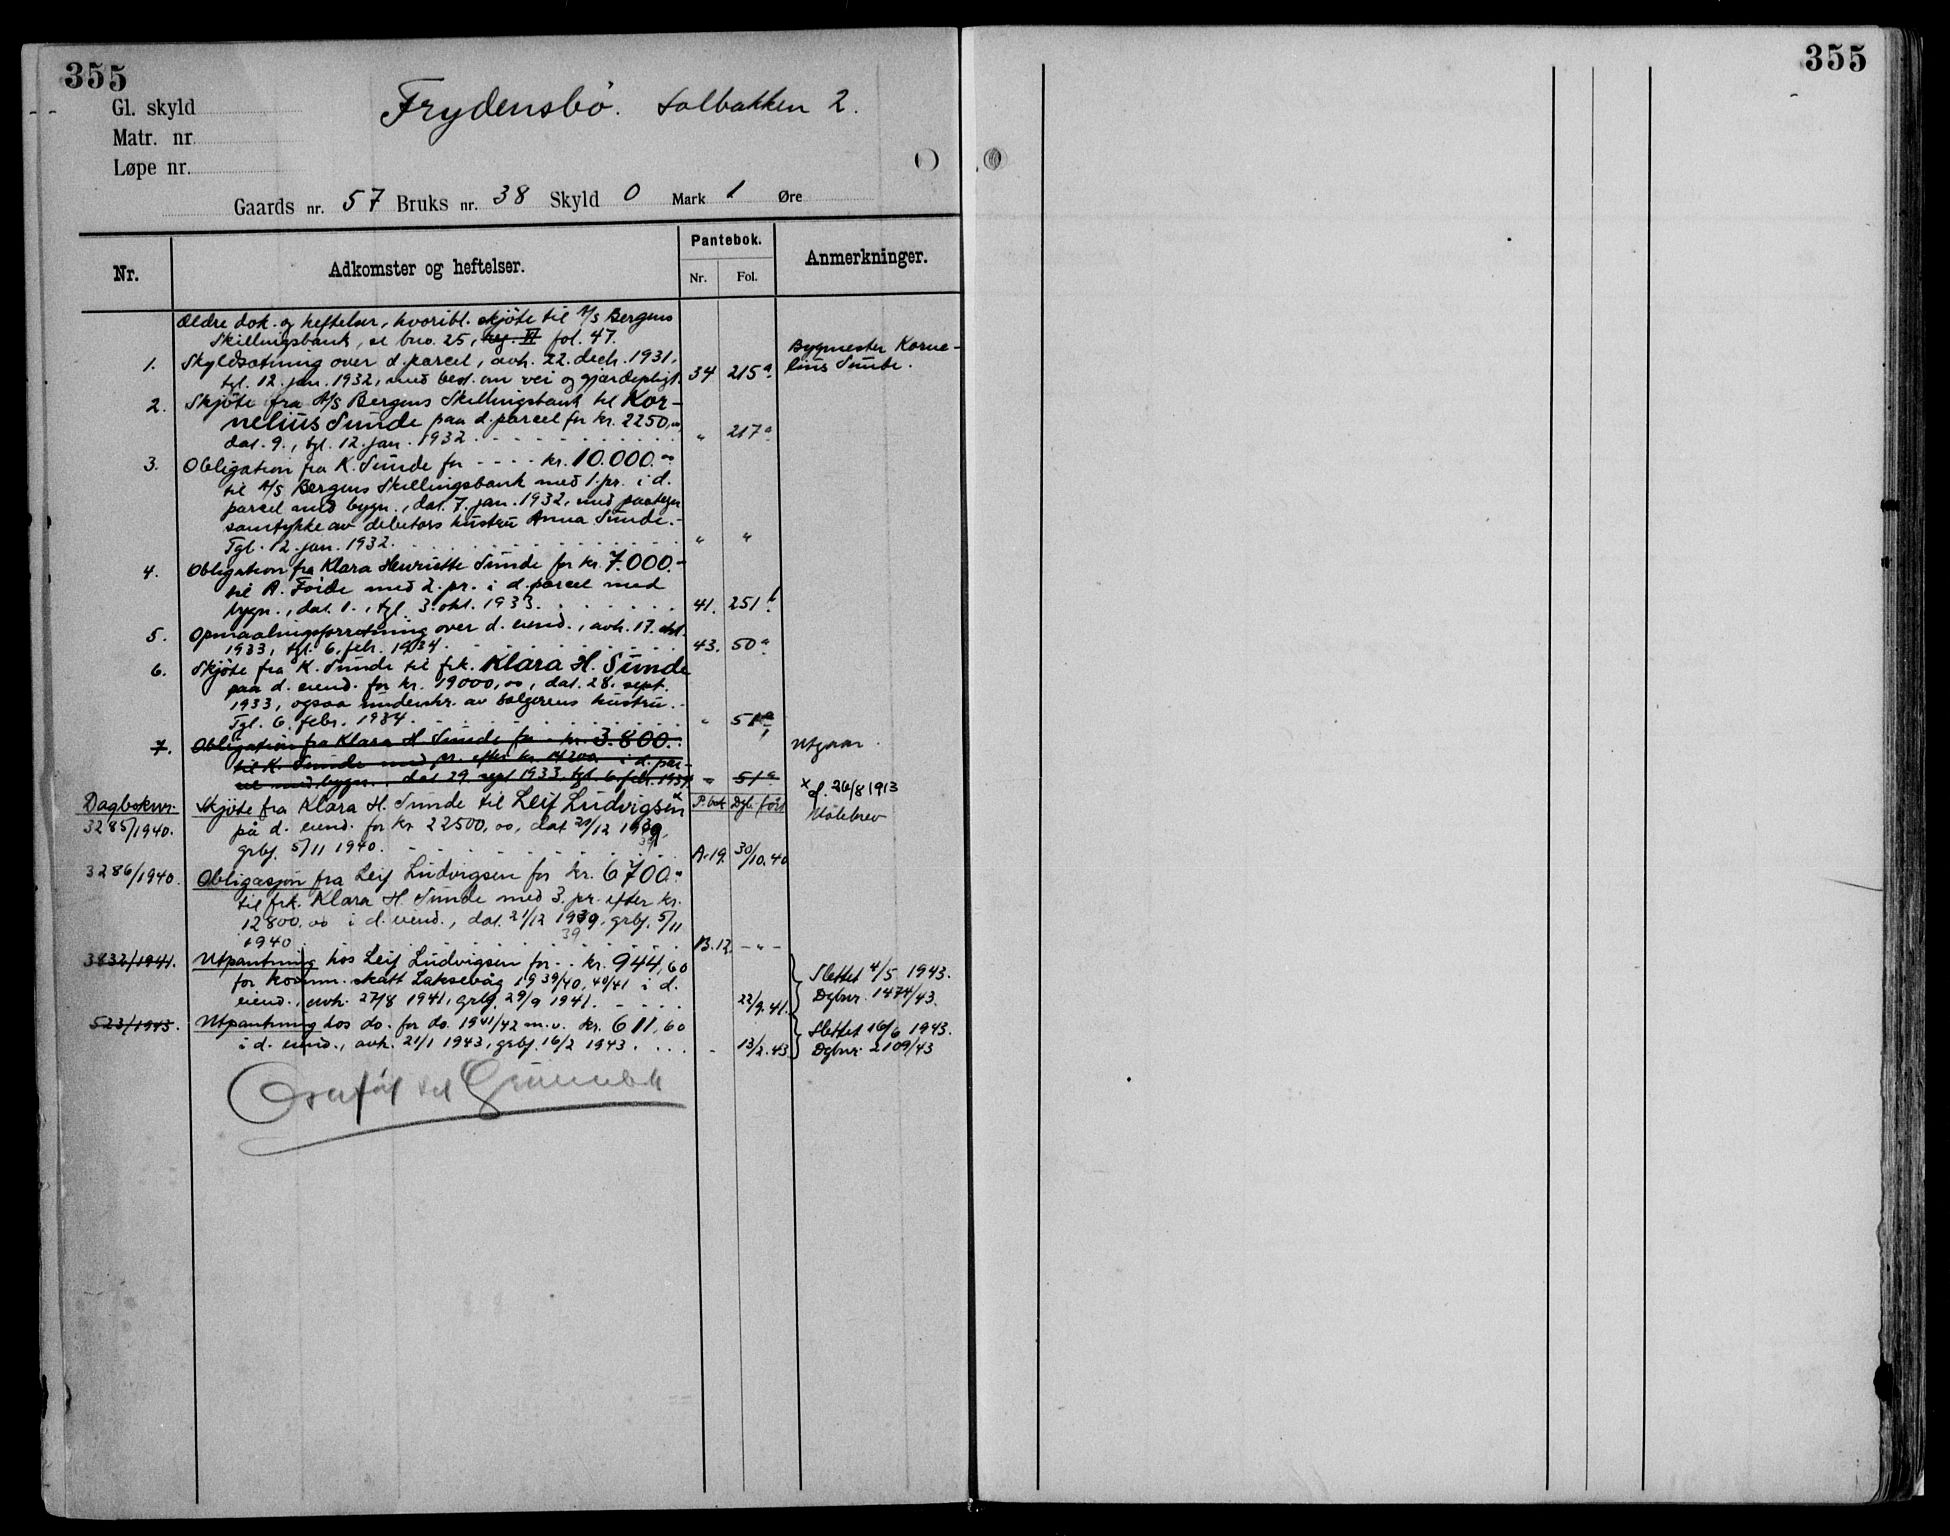 355
355
Gl. skyld
Matr. nr.
Løpe nr.
Frydensbø. Solbakken 2.
Gaards nr. 57 Bruks nr. 38 Skyld 0 Mark 1 Øre
Nr.
Adkomster og heftelser.
Pantebok.
Nr.
Fol.
Anmerkninger.
Ældre dok. og heftelser, hvoribl. skjøte til A/S Bergens
Skillingsbank, se bno. 25, reg. VI fol. 47.
1. Skyldsætning over d. parcel, avh. 22. decb. 1931,
tgl. 12. jan. 1932, med best. om vei og gjærdepligt. 34 215a.
Bygmester Korne-
lius Sunde.
2. Skjøte fra A/S Bergens Skillingsbank til Kor-
nelius Sunde paa d. parcel for kr. 2250,oo,
dat. 9., tgl. 12. jan. 1932 " 217a
3. Obligation fra K. Sunde for - - - - kr. 10.000.oo
til A/S Bergens Skillingsbank med 1. pr. i d.
parcel med bygn., dat. 7. jan. 1932, med paategn
samtykke av debitors hustru Anna Sunde.
Tgl. 12. jan. 1932. " "
4. Obligation fra Klara Henriette Sunde for kr. 7.000.-
til A. Foide med 2. pr. i d. parcel med
bygn., dat. 1., tgl. 3. okt. 1933. 41. 251b.
5. Opmaalingsforretning over d. eiend., avh. 17. okt.
1933, tgl. 6. febr. 1934. 43. 50a
6. Skjøte fra K. Sunde til frk. Klara H. Sunde
paa d. eiend. for kr. 19000,oo, dat. 28. sept.
1933, ogsaa underskr. av sælgerens hustru.
Tgl. 6. febr. 1934. " 51a
7. Obligation fra Klara H. Sunde for - kr. 3.800.-
til K. Sunde med pr. efter kr. 14200 i d. par-
cel med bygn. dat 29. sept 1933, tgl. 6. febr. 1934 " 51a
Utgaar.
Dagboknr. Skjøte fra Klara H. Sunde til Leif Ludvigsen x P.bok Dgb. ført
3285/1940. på d. eiend. for kr 22500,oo, dat 21/12 1939,
39
grbf. 5/11 1940. A.19. 30/10.40
x f. 26/8 1913
Målebrev
3286/1940. Obligasjon fra Leif Ludvigsen for kr. 6700.oo
til frk. Klara H. Sunde med 3. pr. efter kr.
12800,oo i d. eiend., dat. 21/12 1939, grbf. 5/11
39
1940 B.12. - " -
3832/1941. Utpantning hos Leif Ludvigsen for - - kr. 944,60
for komm. skatt Laksevåg 1939/40, 40/41 i d.
eiend., avh. 27/8 1941, grbf. 29/9 1941. 22/9.41.
Slettet 4/5 1943.
Dgbnr. 1474/43.
523/1943. Utpantning hos do. for do. 1941/42 m.v. kr. 611,60
i d. eiend., avh. 21/1 1943, grbf. 16/2 1943. - 13/2.43.
Slettet 16/6 1943.
Dgbnr. 2109/43
Overført til Grunnbok